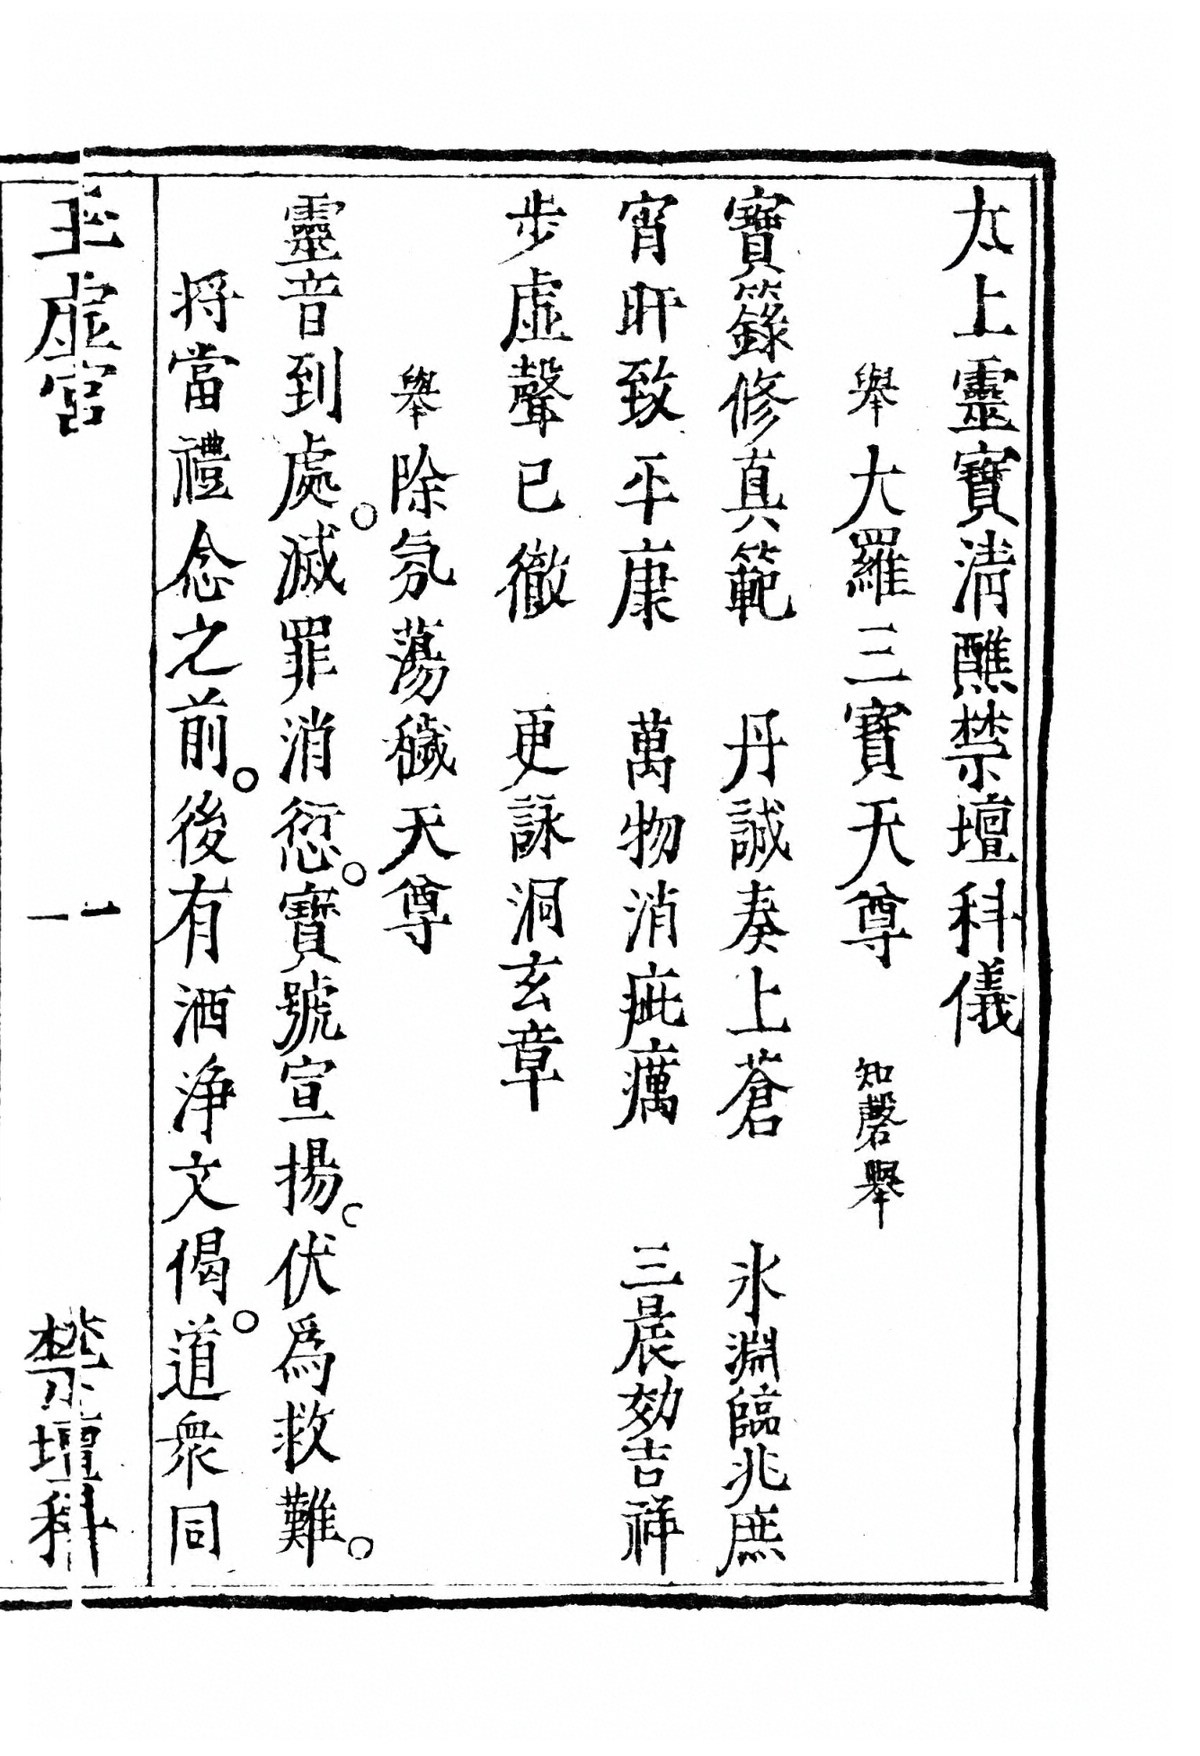 太上靈寶清醮禁壇科儀
舉大羅三寶天尊 知磬舉
寶籙修真範 丹誠奏上蒼 氷淵臨兆庶
宵旰致平康 萬物消疵癘 三晨効吉祥
步虛聲已徹 更詠洞玄章
舉除氛蕩穢天尊
靈音到處。滅罪消愆。寶號宣揚。伏爲救難。
將當禮念之前。後有洒淨文偈。道衆同
玉虛宮 一 禁壇科